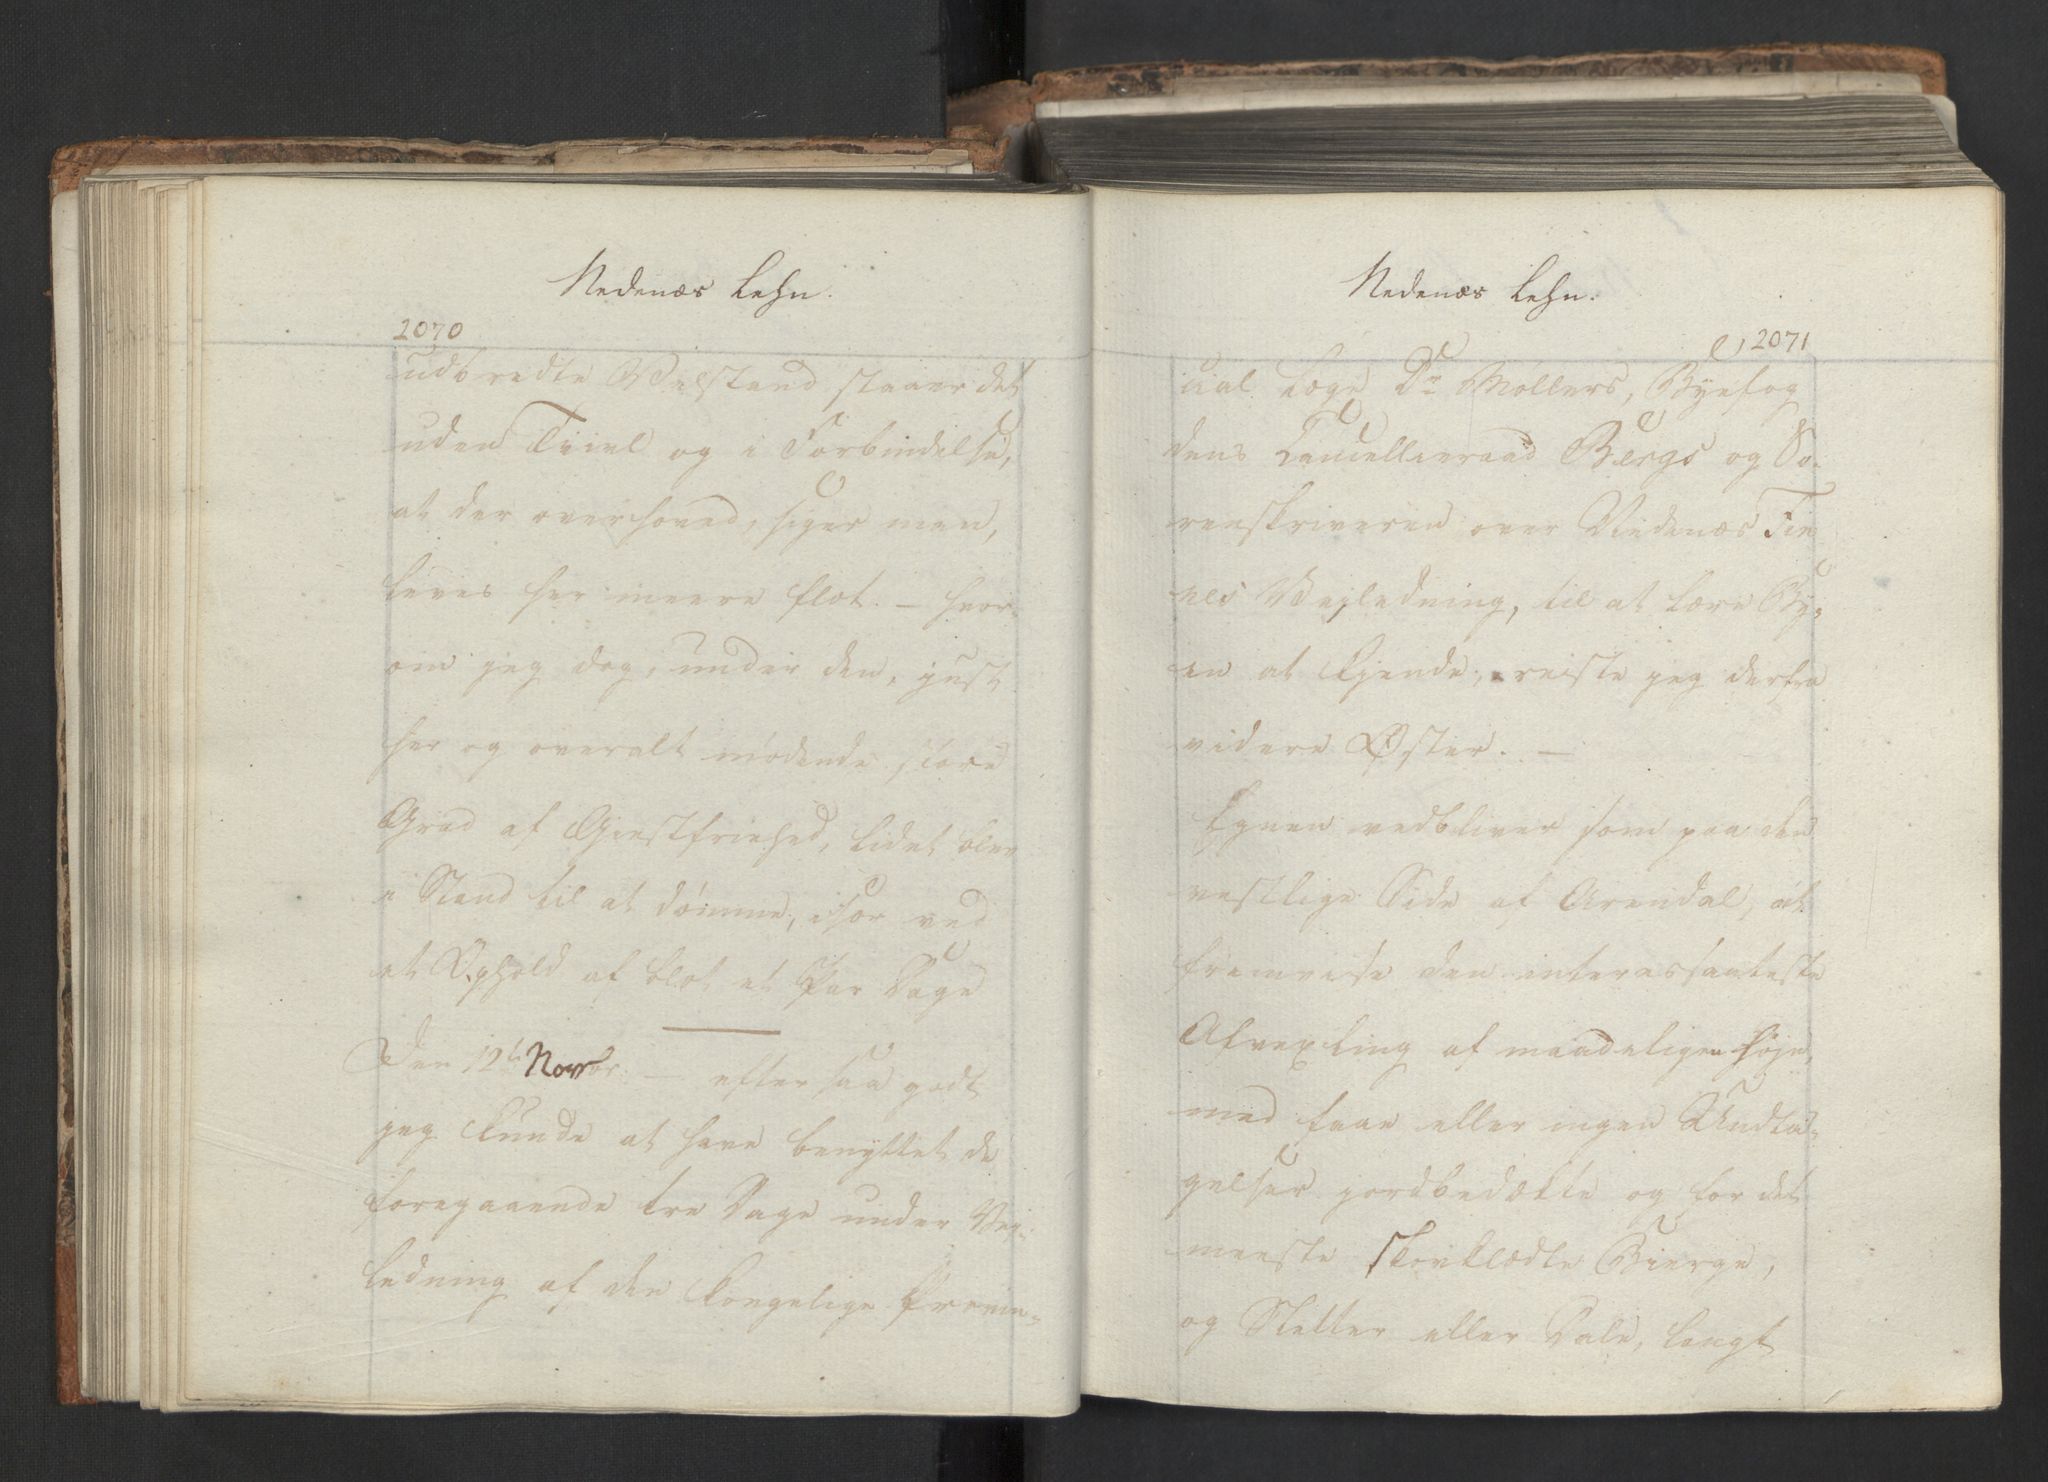 Nedenæs Lehn.
2070
udbredte Velstand staaer det
uden Tvivl og i Forbindelse,
at der overhoved, siger man,
leves her meere flot. – hvor-
om jeg dog, under den, just
her og overalt mødende store
Grad af Giestfriehed, lidet blev
i Stand til at dømme, især ved
et Ophold af blot et Par Dage
Den 12te Novbr. – efter saa godt
jeg kunde at have benyttet de
foregaaende tre Dage under Vej-
ledning af den kongelige Provin-
Nedenæs Lehn.
2071
cial Læge Dr Møllers, Byefog
dens Cancellieraad Bergs og So-
renskriveren over Nedenæs Fin
nes Vejledning, til at lære By-
en at kjende, reiste jeg derfra
videre Øster. –
Egnen vedbliver som paa den
vestlige Side af Arendal, at
fremvise den interessanteste
Afvexling af maadeligen høje,
med faae eller ingen Undta-
gelser jordbedækte og for det
meeste skovklædte Bierge,
og Sletter eller Dale, langt